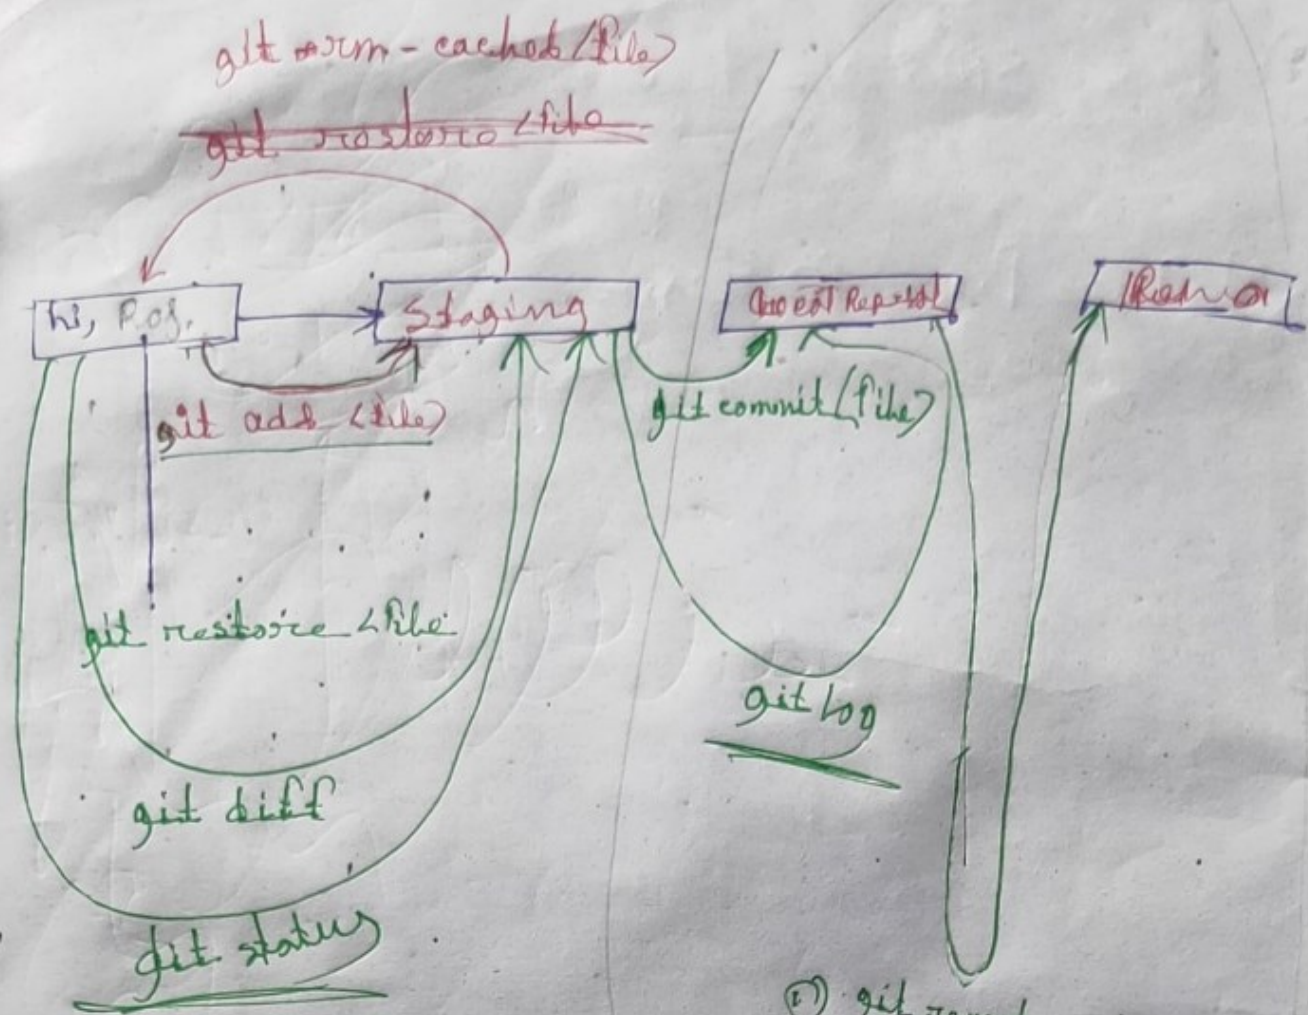 git rm - cached <file>
git restore <file
Staging
git add <file>
git commit <file>
git restore <file
git log
git diff
git status
git